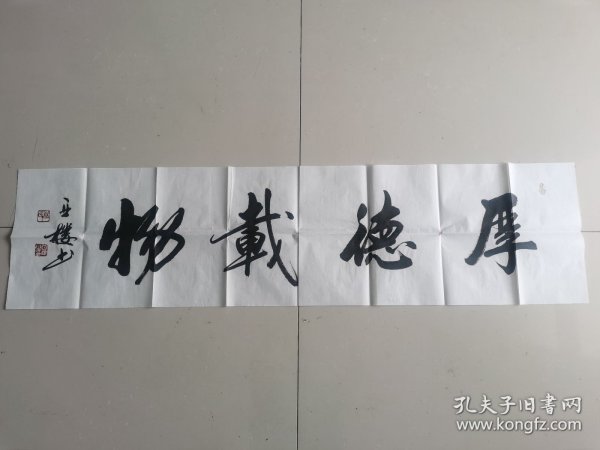 厚德載物
王樓书
孔夫子旧书网
www.kongfz.com